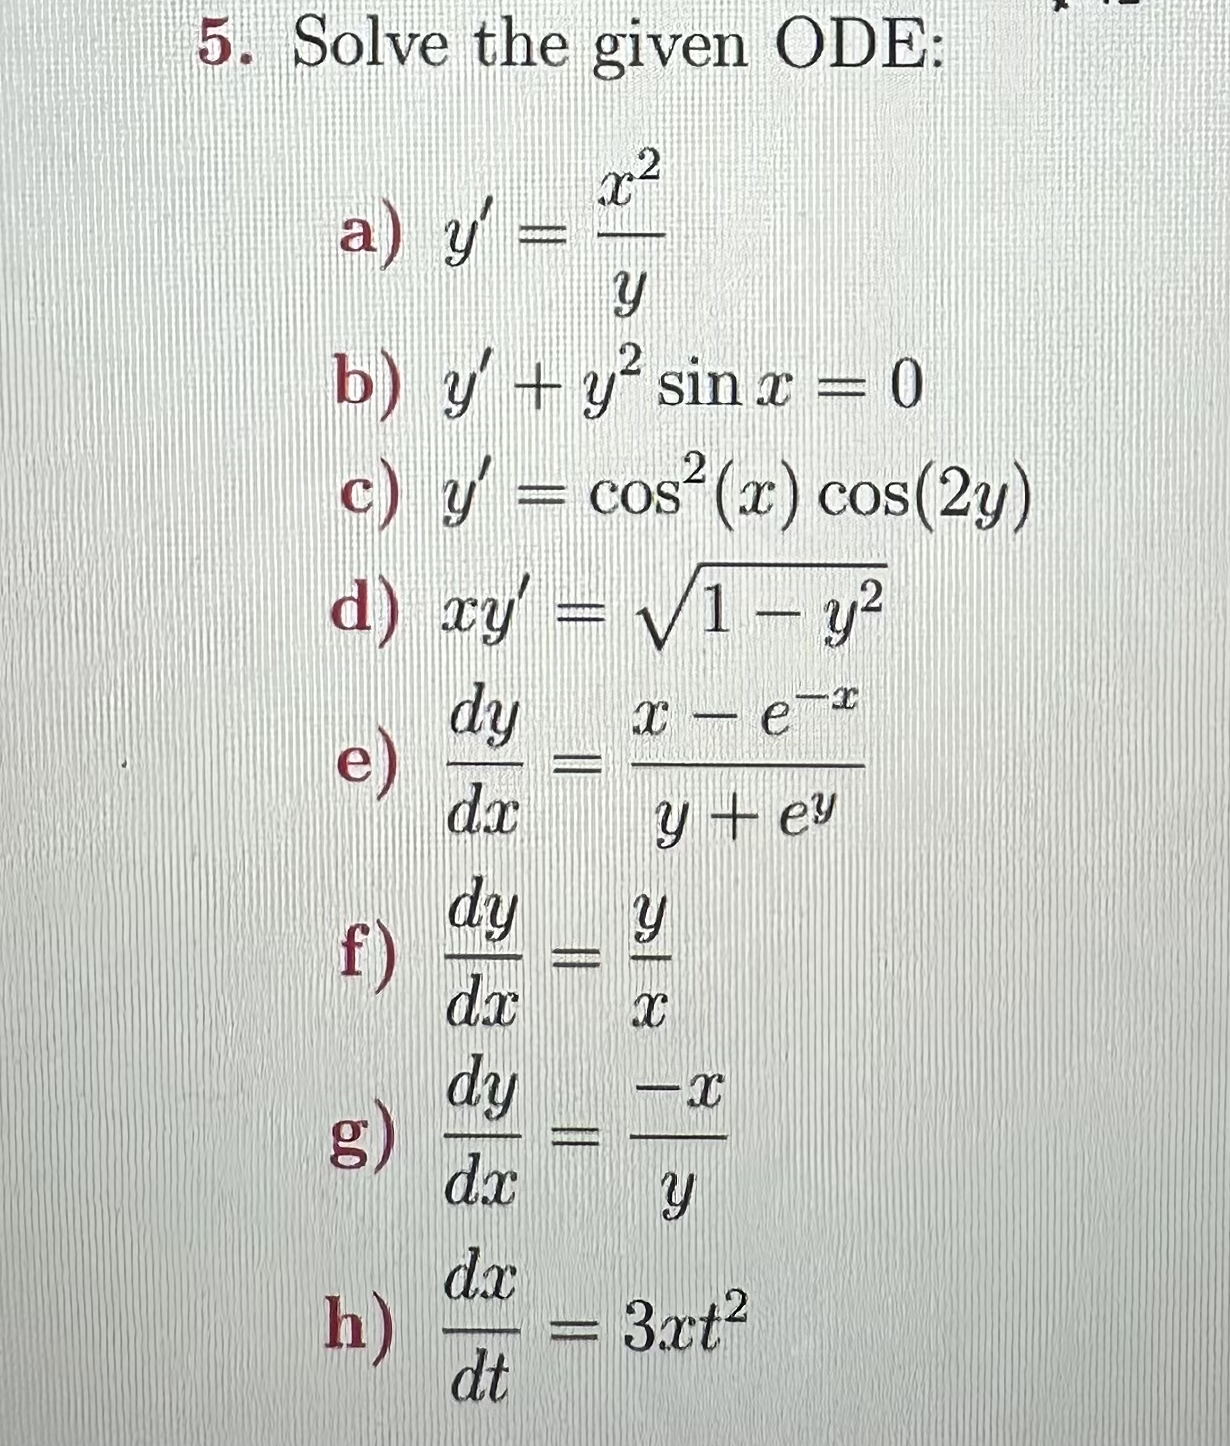 5. Solve the given ODE:
a) y′ = x²/y
b) y′ + y² sin x = 0
c) y′ = cos²(x) cos(2y)
d) xy′ = √(1 − y²)
e) dy/dx = (x − e⁻ˣ)/(y + eʸ)
f) dy/dx = y/x
g) dy/dx = −x/y
h) dx/dt = 3xt²